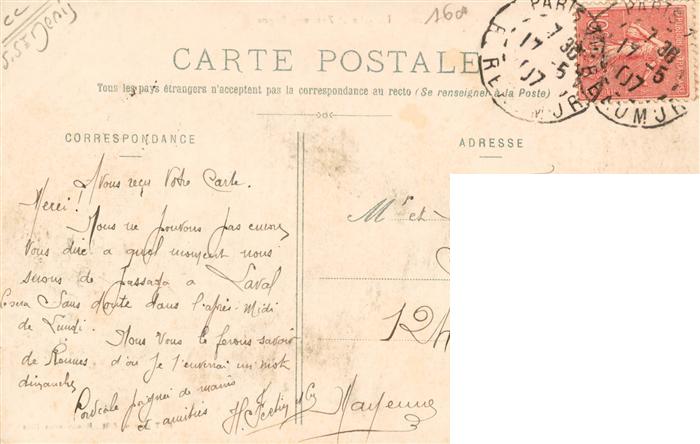 CC
S. St Denis
160
CARTE POSTALE
Tous les pays étrangers n'acceptent pas la correspondance au recto (Se renseigner à la Poste)
PARIS
7 30
17 - 5
07
R. REAUMUR
PARIS
7 30
17 - 5
07
REAUMUR
10
CORRESPONDANCE
ADRESSE
Avons reçu Votre Carte.
Merci!
Nous ne pouvons pas encore
Vous dire a quel moment nous
serons de passage a Laval
Sera Sans doute dans l'après-Midi
de Lundi. Nous Vous le ferons savoir
de Rennes d'où je t'enverrai un mot
dimanche
Cordiale poignée de mains
et amitiés
Mr et
124
Mayenne